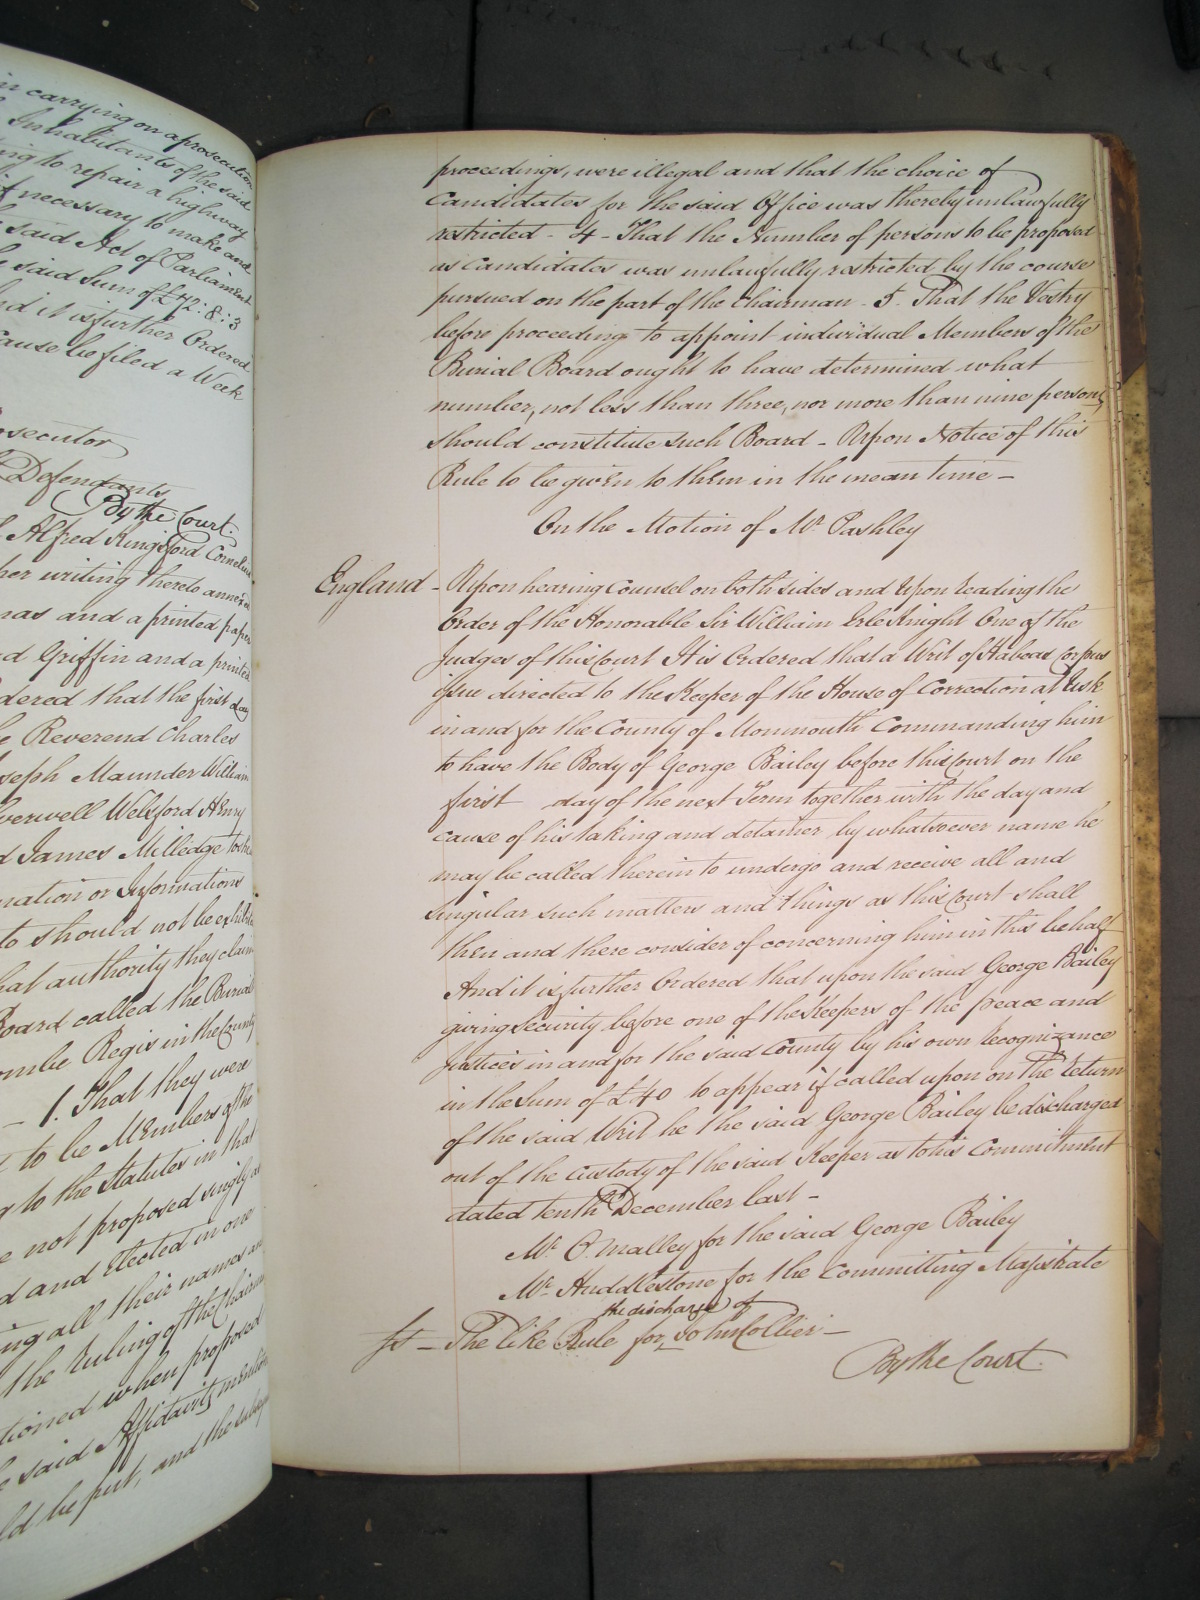 in carrying on a prosecution
Inhabitants of the said
to repair a highway
if necessary to make and
said Act of Parliament
said Sum of £42: 8: 3
And it is further Ordered
Cause be filed a Week
Prosecutor
Defendants
By the Court.
Alfred Kingsford Cornelius
writing thereto annexed
and a printed paper
Griffin and a printed
Ordered that the first day
Reverend Charles
Joseph Maunder William
Welsford Henry
James Milledge to
Information or Informations
to should not be exhibited
what authority they claim
Board called the Burial
Regis in the County
– 1. That they were
to be Members of the
to the Statutes in that
not proposed singly as
and Elected in one
all their names and
the Ruling of the Chairman
when proposed
said Affidavits mention
be put, and the
proceedings, were illegal and that the choice of
Candidates for the said Office was thereby unlawfully
restricted – 4 – That the Number of persons to be proposed
as Candidates was unlawfully restricted by the course
pursued on the part of the Chairman – 5. That the Vestry
before proceeding to appoint individual Members of the
Burial Board ought to have determined what
number, not less than three, nor more than nine persons,
should constitute such Board – Upon Notice of this
Rule to be given to them in the mean time –
On the Motion of Mr. Pashley
England – Upon hearing Counsel on both sides and Upon reading the
Order of the Honorable Sir William Erle Knight One of the
Judges of this Court It is Ordered that a Writ of Habeas Corpus
issue directed to the Keeper of the House of Correction at Usk
in and for the County of Monmouth Commanding him
to have the Body of George Bailey before this Court on the
first day of the next Term together with the day and
cause of his taking and detainer by whatsoever name he
may be called therein to undergo and receive all and
singular such matters and things as this Court shall
then and there consider of concerning him in this behalf
And it is further Ordered that upon the said George Bailey
giving Security before one of the Keepers of the peace and
Justices in and for the said County by his own Recognizance
in the Sum of £40 to appear if called upon on the Return
of the said Writ he the said George Bailey be discharged
out of the Custody of the said Keeper as to his Commitment
dated tenth December last –
Mr. O'Malley for the said George Bailey
Mr. Huddlestone for the Committing Magistrate
the discharge of
– The like Rule for John Collier –
By the Court.